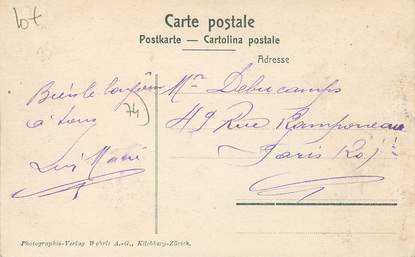 lot
Carte postale
Postkarte — Cartolina postale
Adresse
74
à tous
Mr Debucamps
49 Rue Ramponeau
Paris
Photographie-Verlag Wehrli A.-G., Kilchberg-Zürich.